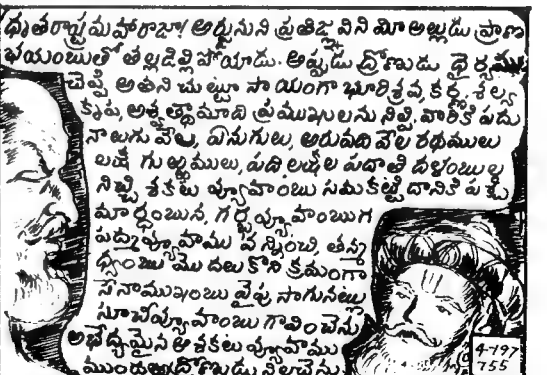 ధృతరాష్ట్రమహారాజా! అర్జునుని ప్రతిజ్ఞ విని మీ అల్లుడు ప్రాణ
భయంబుతో తల్లడిల్లి పోయాడు. అప్పుడు ద్రోణుడు ధైర్యము
చెప్పి అతని చుట్టూ సాయంగా భూరిశ్రవ, కర్ణ, శల్య
కృప, అశ్వత్థామాది ప్రముఖులను నిల్పి, వారికి పదు
నాలుగు వేలు, ఏనుగులు, అరువది వేల రథములు
లక్ష గుఱ్ఱములు, పది లక్షల పదాతి దళంబుల
నిచ్చి శకట వ్యూహంబు సమకట్టి దానికి పశ్చి
మార్ధంబున, గర్భవ్యూహంబుగ
పద్మవ్యూహము పన్నించి, తన్మ
ధ్యంబు మొదలుకొని క్రమంగా
సేనాముఖంబు వైపు సాగునట్లు
సూచీవ్యూహంబు గావించెను
అభేద్యమైన ఆ శకట వ్యూహము
ముందుట ద్రోణుడు నిలచెను
4-197
755